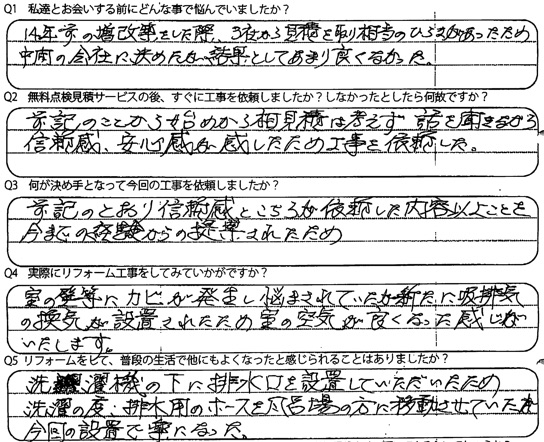 Q1 私達とお会いする前にどんな事で悩んでいましたか?
14年前の増改築をした際、3社から見積を取り相当のひらきがあったため
中間の会社に決めたが結果としてあまり良くなかった。
Q2 無料点検見積サービスの後、すぐに工事を依頼しましたか?しなかったとしたら何故ですか?
前記のことから始めから相見積は考えず 話を聞きながら
信頼感、安心感を感じたため工事を依頼した。
Q3 何が決め手となって今回の工事を依頼しましたか?
前記のとおり信頼感とこちらが依頼した内容以上ことを
今までの経験からの提案されたため
Q4 実際にリフォーム工事をしてみていかがですか?
室の壁等にカビが発生し悩まされていたが新たに吸排気
の換気が設置されたため室の空気が良くなった感じが
いたします。
Q5 リフォームをして、普段の生活で他にもよくなったと感じられることはありましたか?
洗濯機の下に排水口を設置していただいたため
洗濯の度、排水用のホースを風呂場の方に移動させていたが
今回の設置で楽になった。